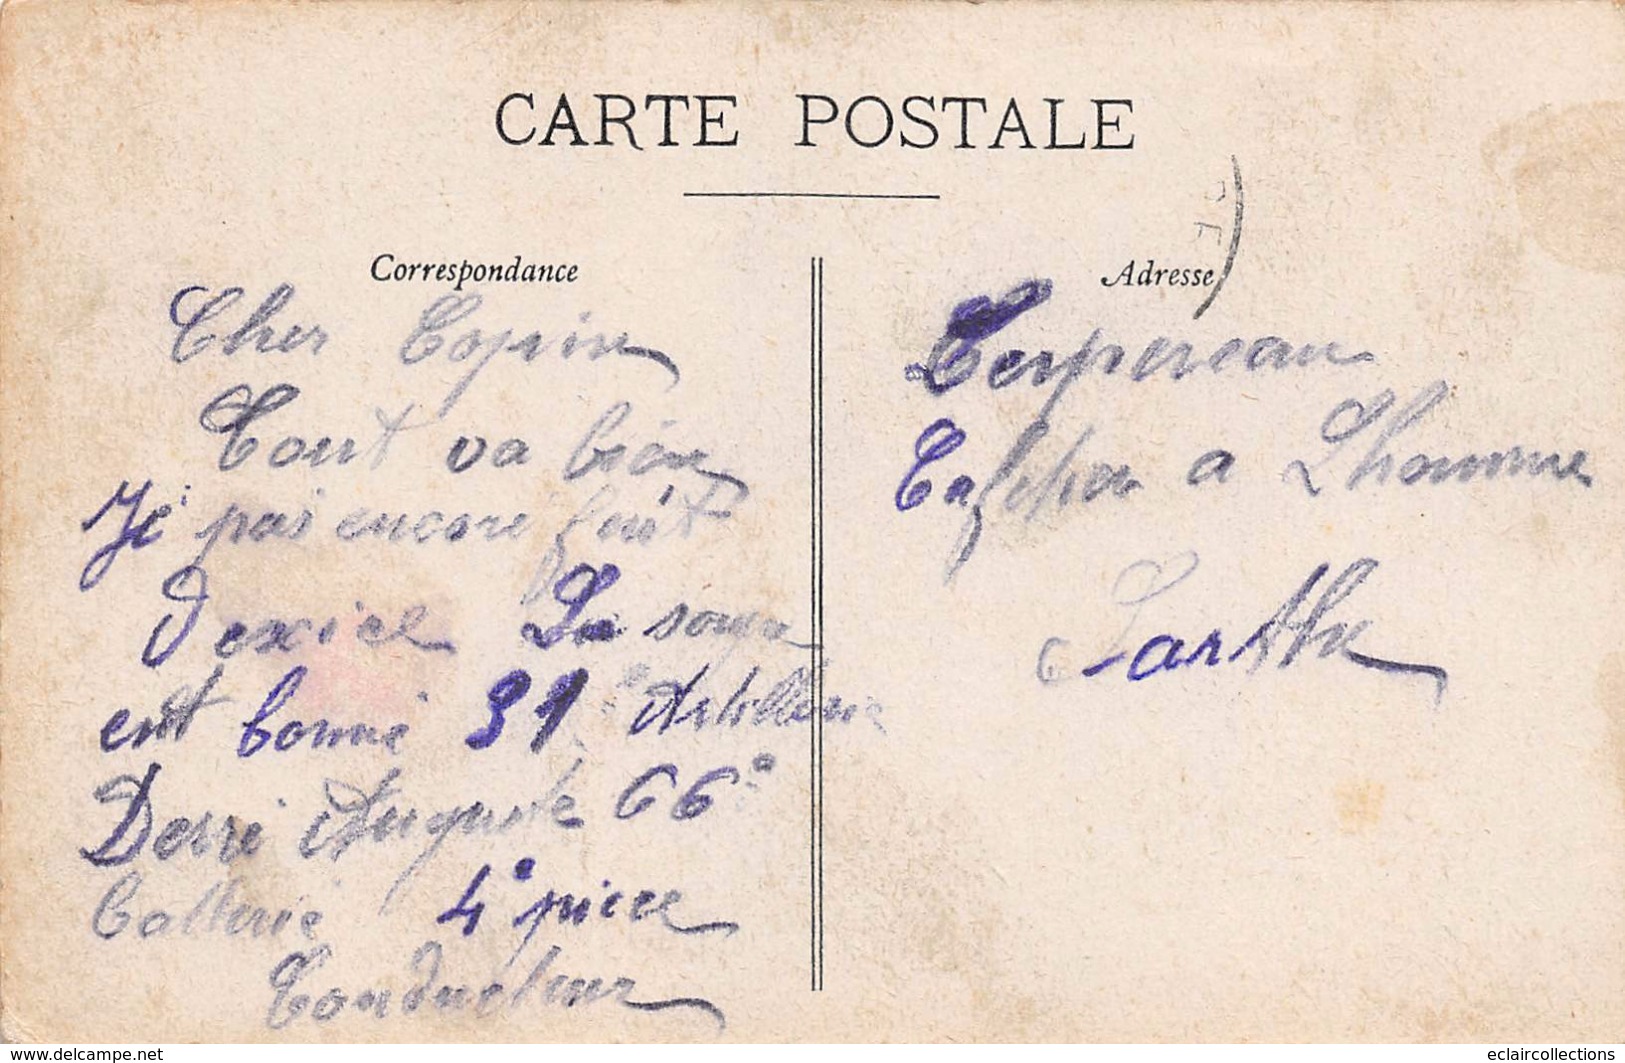 CARTE POSTALE
Correspondance
Cher Copin
Tout va bien
Je pas encore fait
d'exice La soupe
est bonne 31e Artillerie
Derri Auguste 66e
Batterie 4e piece
Conducteur
Adresse
Terpereau
a Lhomme
Sarthe
www.delcampe.net
eclaircollections